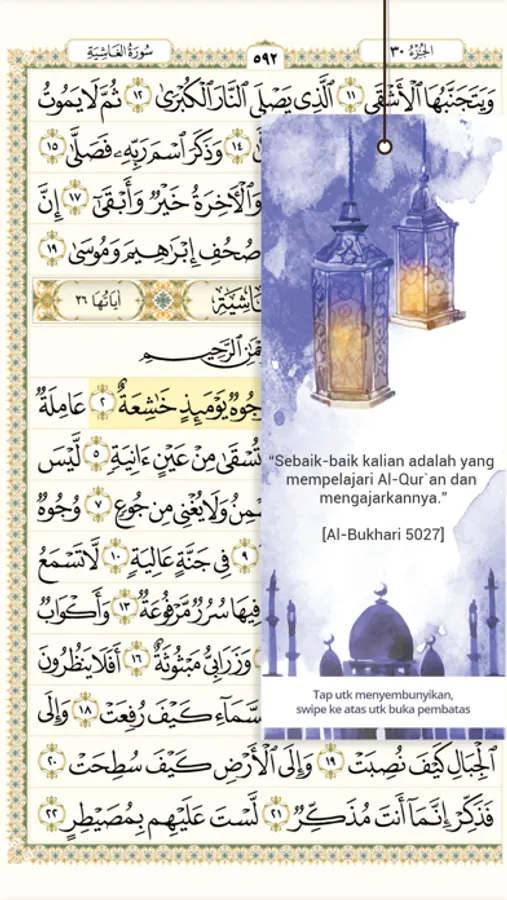 سُورَةُ الغَاشِيَةِ
٥٩٢
الجُزْءُ ٣٠
وَيَتَجَنَّبُهَا ٱلْأَشْقَى ١١ ٱلَّذِى يَصْلَى ٱلنَّارَ ٱلْكُبْرَىٰ ١٢ ثُمَّ لَا يَمُوتُ
١٤ وَذَكَرَ ٱسْمَ رَبِّهِۦ فَصَلَّىٰ ١٥
وَٱلْأَخِرَةُ خَيْرٌ وَأَبْقَىٰٓ ١٧ إِنَّ
صُحُفِ إِبْرَٰهِيمَ وَمُوسَىٰ ١٩
آيَاتُهَا ٢٦
ٱلرَّحِيمِ
يَوْمَئِذٍ خَٰشِعَةٌ ٢ عَامِلَةٌ
تُسْقَىٰ مِنْ عَيْنٍ ءَانِيَةٍ ٥ لَّيْسَ
وَلَا يُغْنِى مِن جُوعٍ ٧ وُجُوهٌ
٩ فِى جَنَّةٍ عَالِيَةٍ ١٠ لَّا تَسْمَعُ
فِيهَا سُرُرٌ مَّرْفُوعَةٌ ١٣ وَأَكْوَابٌ
وَزَرَابِىُّ مَبْثُوثَةٌ ١٦ أَفَلَا يَنظُرُونَ
كَيْفَ رُفِعَتْ ١٨ وَإِلَى
ٱلْجِبَالِ كَيْفَ نُصِبَتْ ١٩ وَإِلَى ٱلْأَرْضِ كَيْفَ سُطِحَتْ ٢٠
فَذَكِّرْ إِنَّمَآ أَنتَ مُذَكِّرٌ ٢١ لَّسْتَ عَلَيْهِم بِمُصَيْطِرٍ ٢٢
“Sebaik-baik kalian adalah yang
mempelajari Al-Qur`an dan
mengajarkannya.”
[Al-Bukhari 5027]
Tap utk menyembunyikan,
swipe ke atas utk buka pembatas